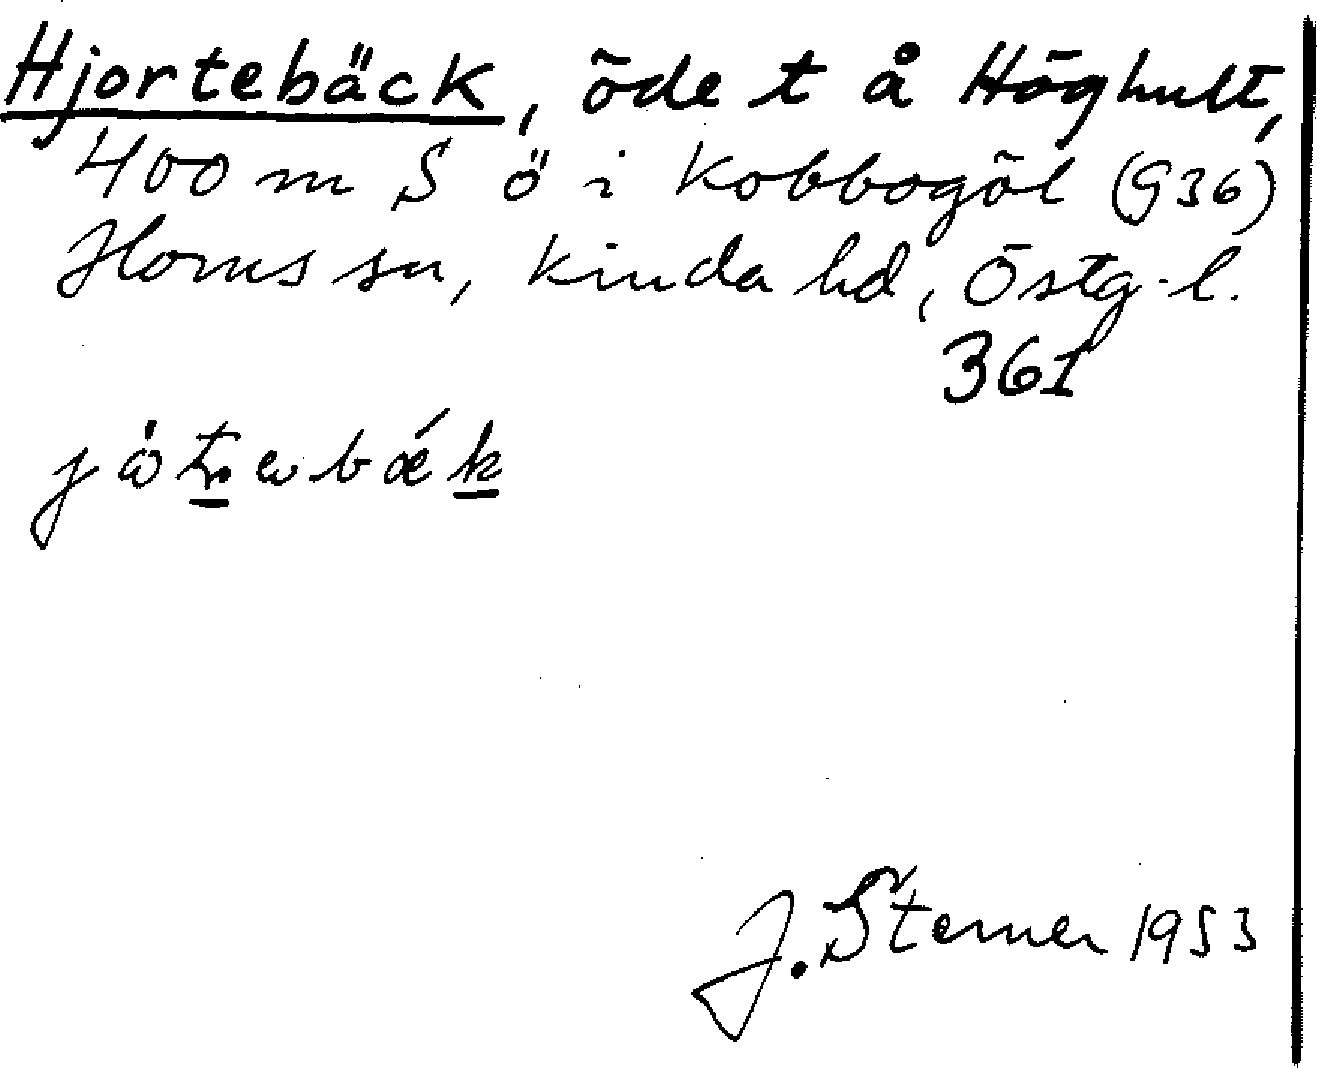 Hjortebäck, öde t å Höghult,
400 m S ö i Kobbogöl (G36)
Horns sn, Kinda hd, Östg.l.
361
J. Sterner 1953